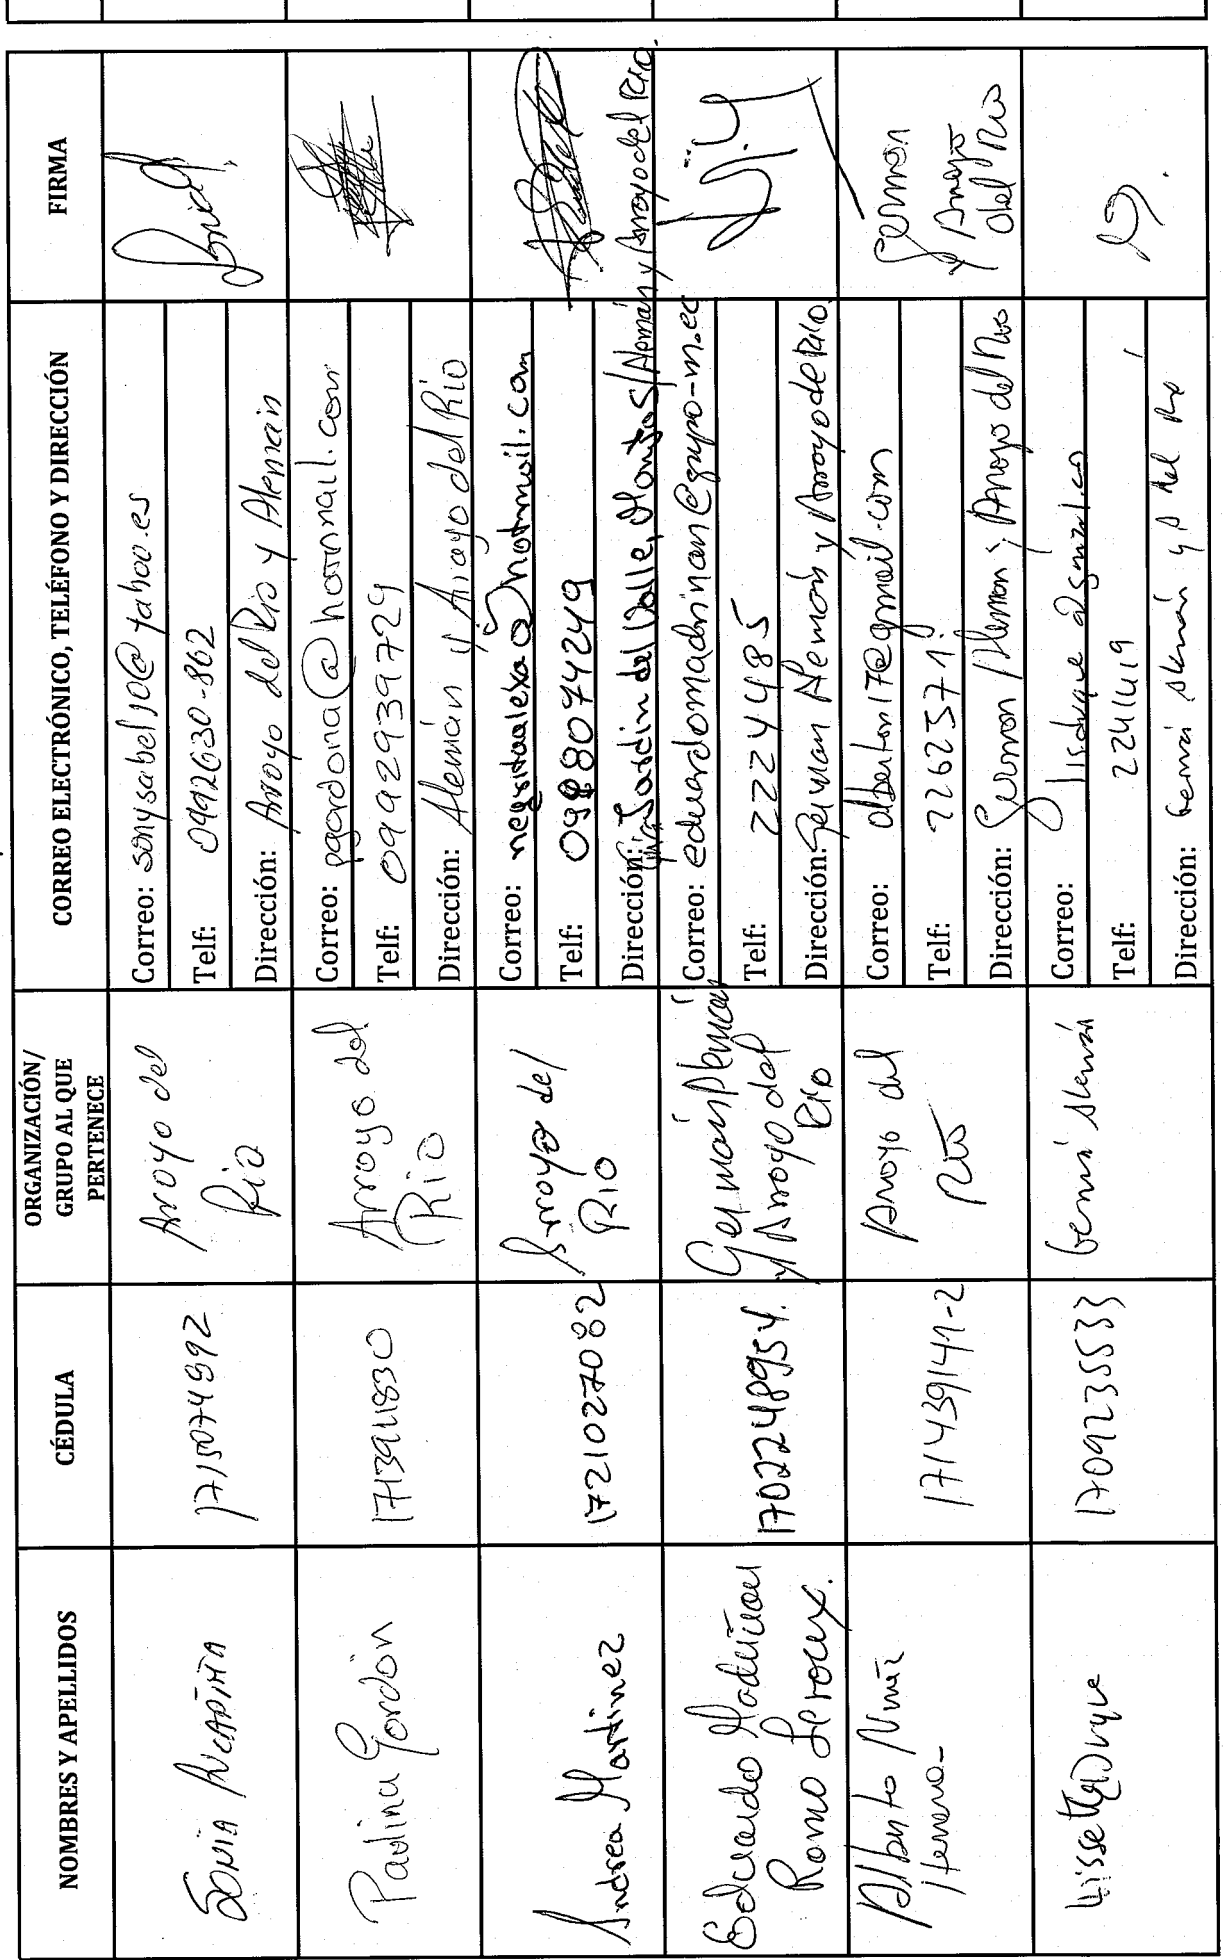 NOMBRES Y APELLIDOS
CÉDULA
ORGANIZACIÓN/
GRUPO AL QUE
PERTENECE
CORREO ELECTRÓNICO, TELÉFONO Y DIRECCIÓN
FIRMA
SONIA
1715074992
Arroyo del
Rio
Correo: sonysabel10@yahoo.es
Telf: 0992630-862
Dirección: Arroyo del Rio y Alemán
Paulina Gordón
1713911830
Arroyo del
Rio
Correo: pgordona@hotmail.com
Telf: 0992939729
Dirección: Alemán y Arroyo del Rio
Andrea Martinez
1721027082
Arroyo del
Rio
Correo: negritaalexa@hotmail.com
Telf: 0988074249
Dirección: Jardín del Valle, Monjas/Alemán y Arroyo del Rio.
Eduardo Madriñan
Romo Leroux.
1702248954.
Germán Alemán
y Arroyo del
Rio
Correo: eduardomadrinan@grupo-m.ec
Telf: 2224485
Dirección: German Alemán y Arroyo del Rio.
Alberto
171439141-2
Arroyo del
Rio
Correo: alberton17@gmail.com
Telf: 2262371
Dirección: German Aleman y Arroyo del Rio
German
y Arroyo
del Rio
Lissette Duque
1709235533
Germán Alemán
Correo:
Telf: 2241419
Dirección: Germán Alemán y A del Rio